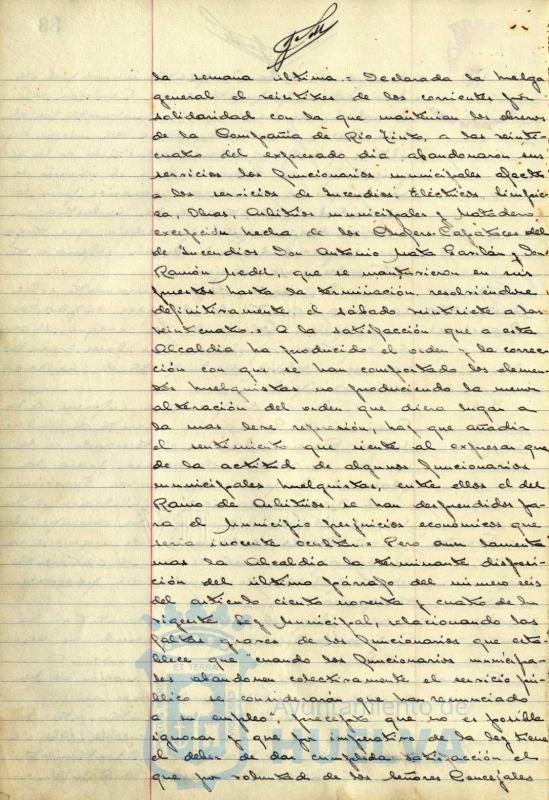 la semana última.= Declarada la huelga
general el veintitres de los corrientes por
solidaridad con la que mantienian los obreros
de la Compañia de Rio Tinto, a las veinte-
cuatro del expresado dia, abandonaron sus
servicios los funcionarios municipales afectos
a los servicios de Incendios, Eléctricos, limpie-
za, Obras, Arbitrios municipales y Matadero
excepción hecha de los Chofers-Capataces del
de Incendios Don Antonio Mata Gavilán y Don
Ramón Medel, que se mantuvieron en sus
puestos hasta la terminación, resolviendose
definitivamente, el sábado veintisiete a las
veintecuatro.= A la satisfacción que a esta
Alcaldia ha producido el orden y la correc-
ción con que se han comportado los elemen-
tos huelguistas no produciendo la menor
alteración del orden que diera lugar a
la mas leve represión, hay que añadir
el sentimiento que siente al expresar que
de la actitud de algunos funcionarios
municipales huelguistas, entre ellos el del
Ramo de Arbitrios, se han desprendidos pa-
ra el Municipio perjuicios economicos que
seria inocente ocultar.= Pero aun lamenta
mas la Alcaldia la terminante disposi-
ción del último párrafo del número seis
del articulo ciento noventa y cuatro de la
vigente Ley Municipal, relacionando las
faltas graves de los funcionarios que esta-
blece que "cuando los funcionarios municipa-
les abandonen colectivamente el servicio pú-
blico se considerarán que han renunciado
a su empleo", precepto que no es posible
ignorar y que por imperativo de la ley tiene
el deber de dar cumplida satisfacción el
que por voluntad de los Señores Concejales
ET TERRA
Ayuntamiento de
HUELVA